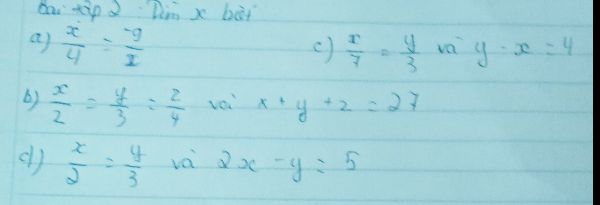 Bài tập 2. Tìm x biết
a) x/4 = -9/x c) x/7 = y/3 và y - x = 4
b) x/2 = y/3 = z/4 và x + y + z = 27
d) x/2 = y/3 và 2x - y = 5